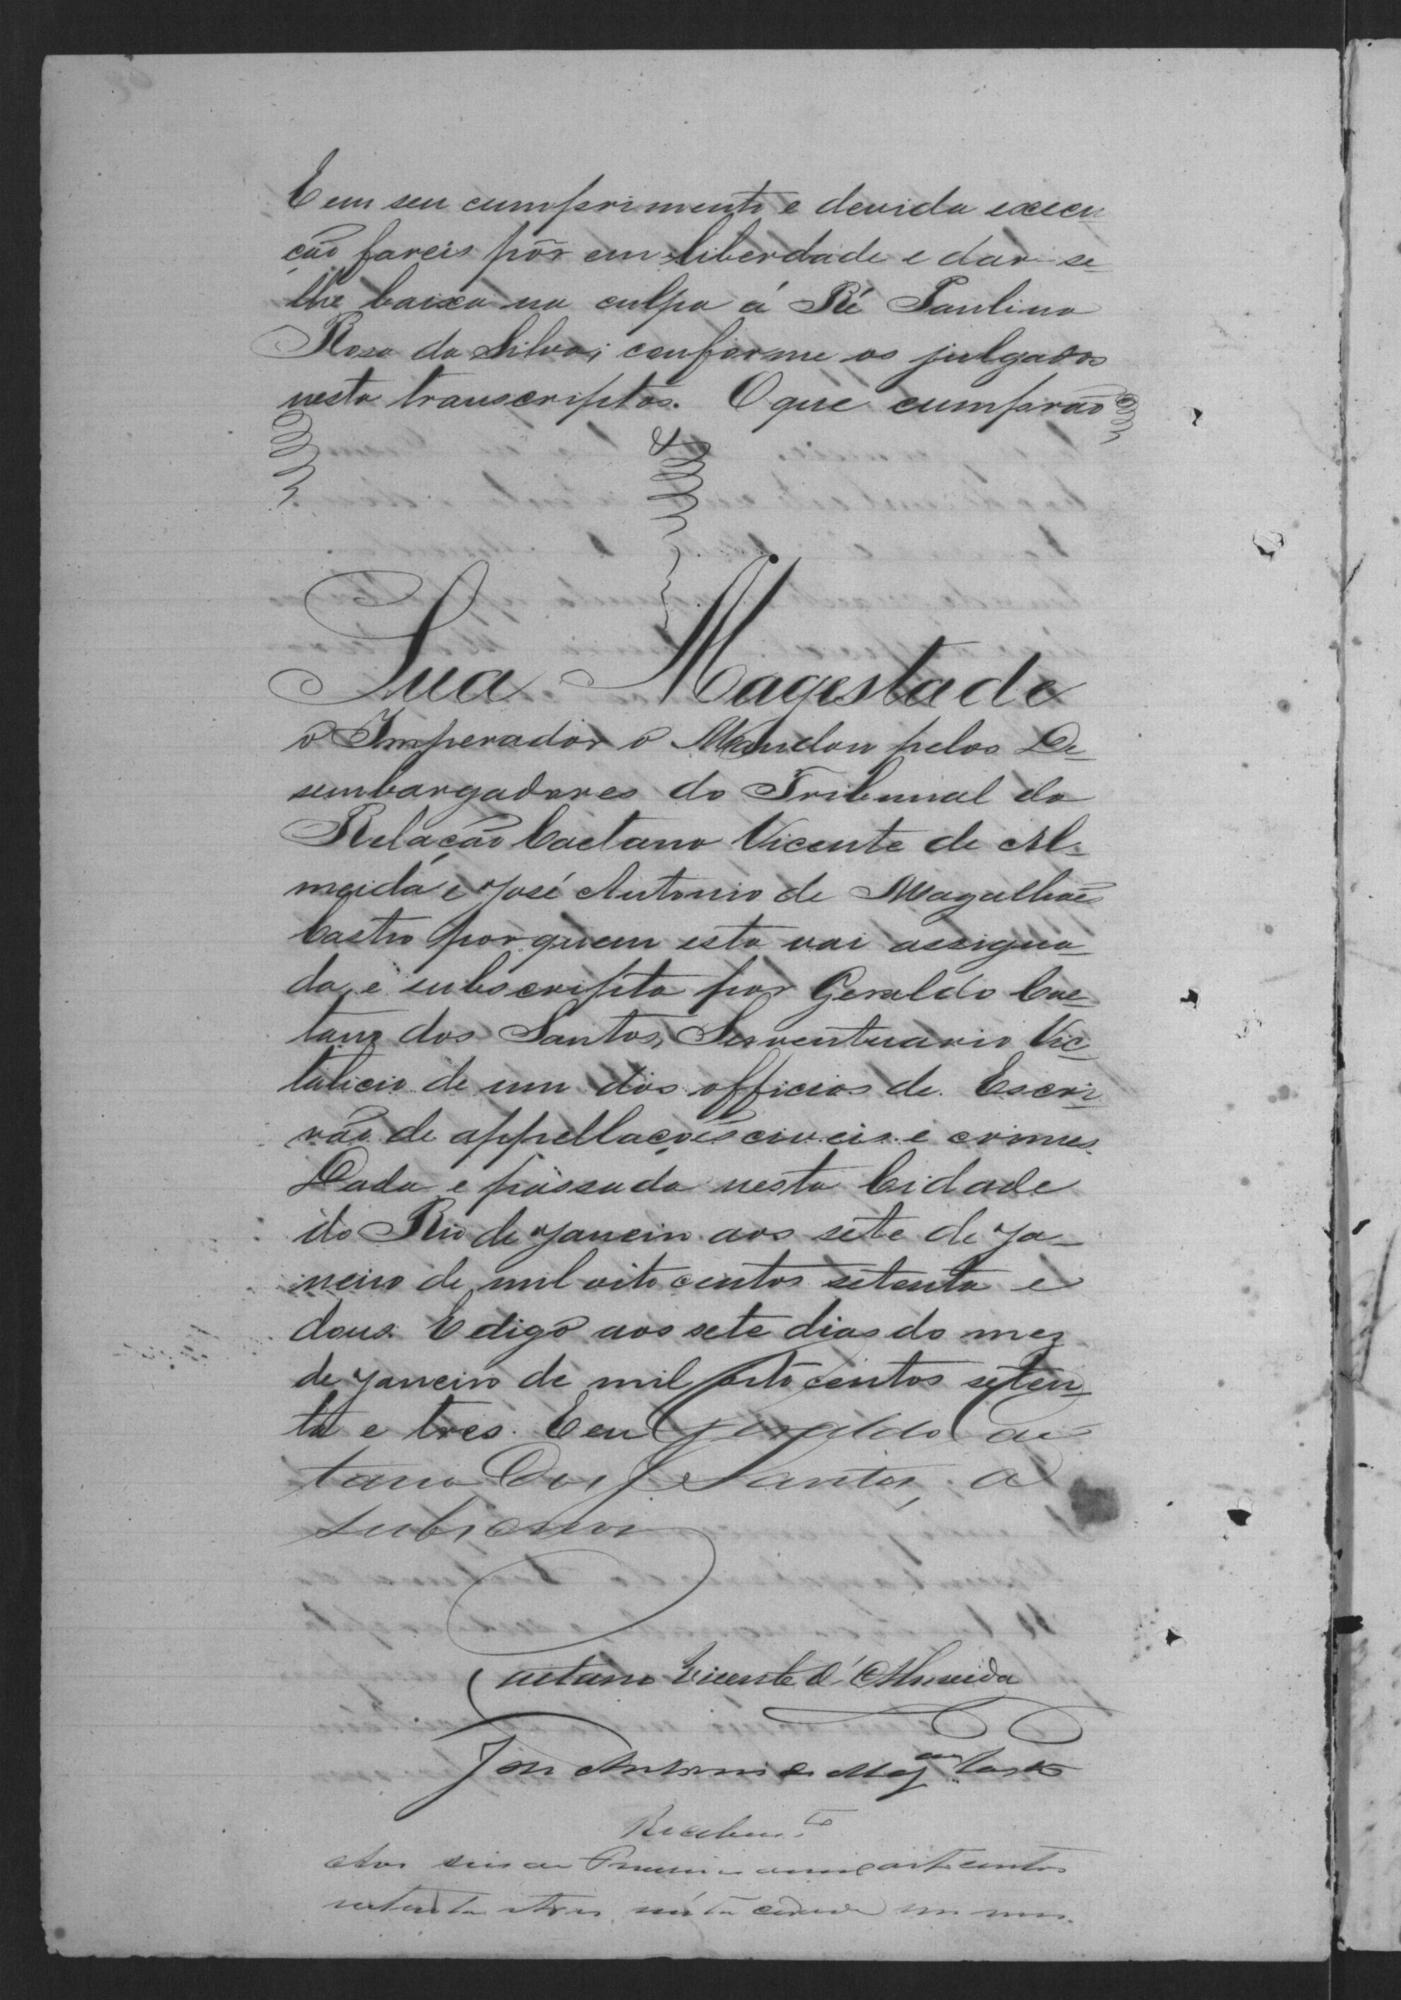 E em seu cumprimento e devida execu
ção fareis pôr em liberdade e dar-se-
lhe baixa na culpa á Ré Paulina
Rosa da Silva, conforme os julgados
nesta transcriptos. O que cumprão
Sua Magestade
o Imperador o Mandou pelos De-
sembargadores do Tribunal da
Relação Caetano Vicente de Al-
meida e José Antonio de Magalhães
Castro por quem esta vai assigna-
da, e subscripta por Geraldo Cae-
tano dos Santos, Serventuario Vic-
talicio de um dos officios de Escri-
vão de appellações civeis e crimes.
Dada e passada nesta Cidade
do Rio de Janeiro aos sete de Ja-
neiro de mil oito centos setenta e
dous. E digo aos sete dias do mez
de Janeiro de mil oito centos seten-
ta e tres. E eu Geraldo Cae
tano dos Santos, a
subscrevi
Caetano Vicente d'Almeida
José Antonio de Mag.es Castro
Recebim.to
Aos seis de mil oito centos
setenta e tres, nesta cidade